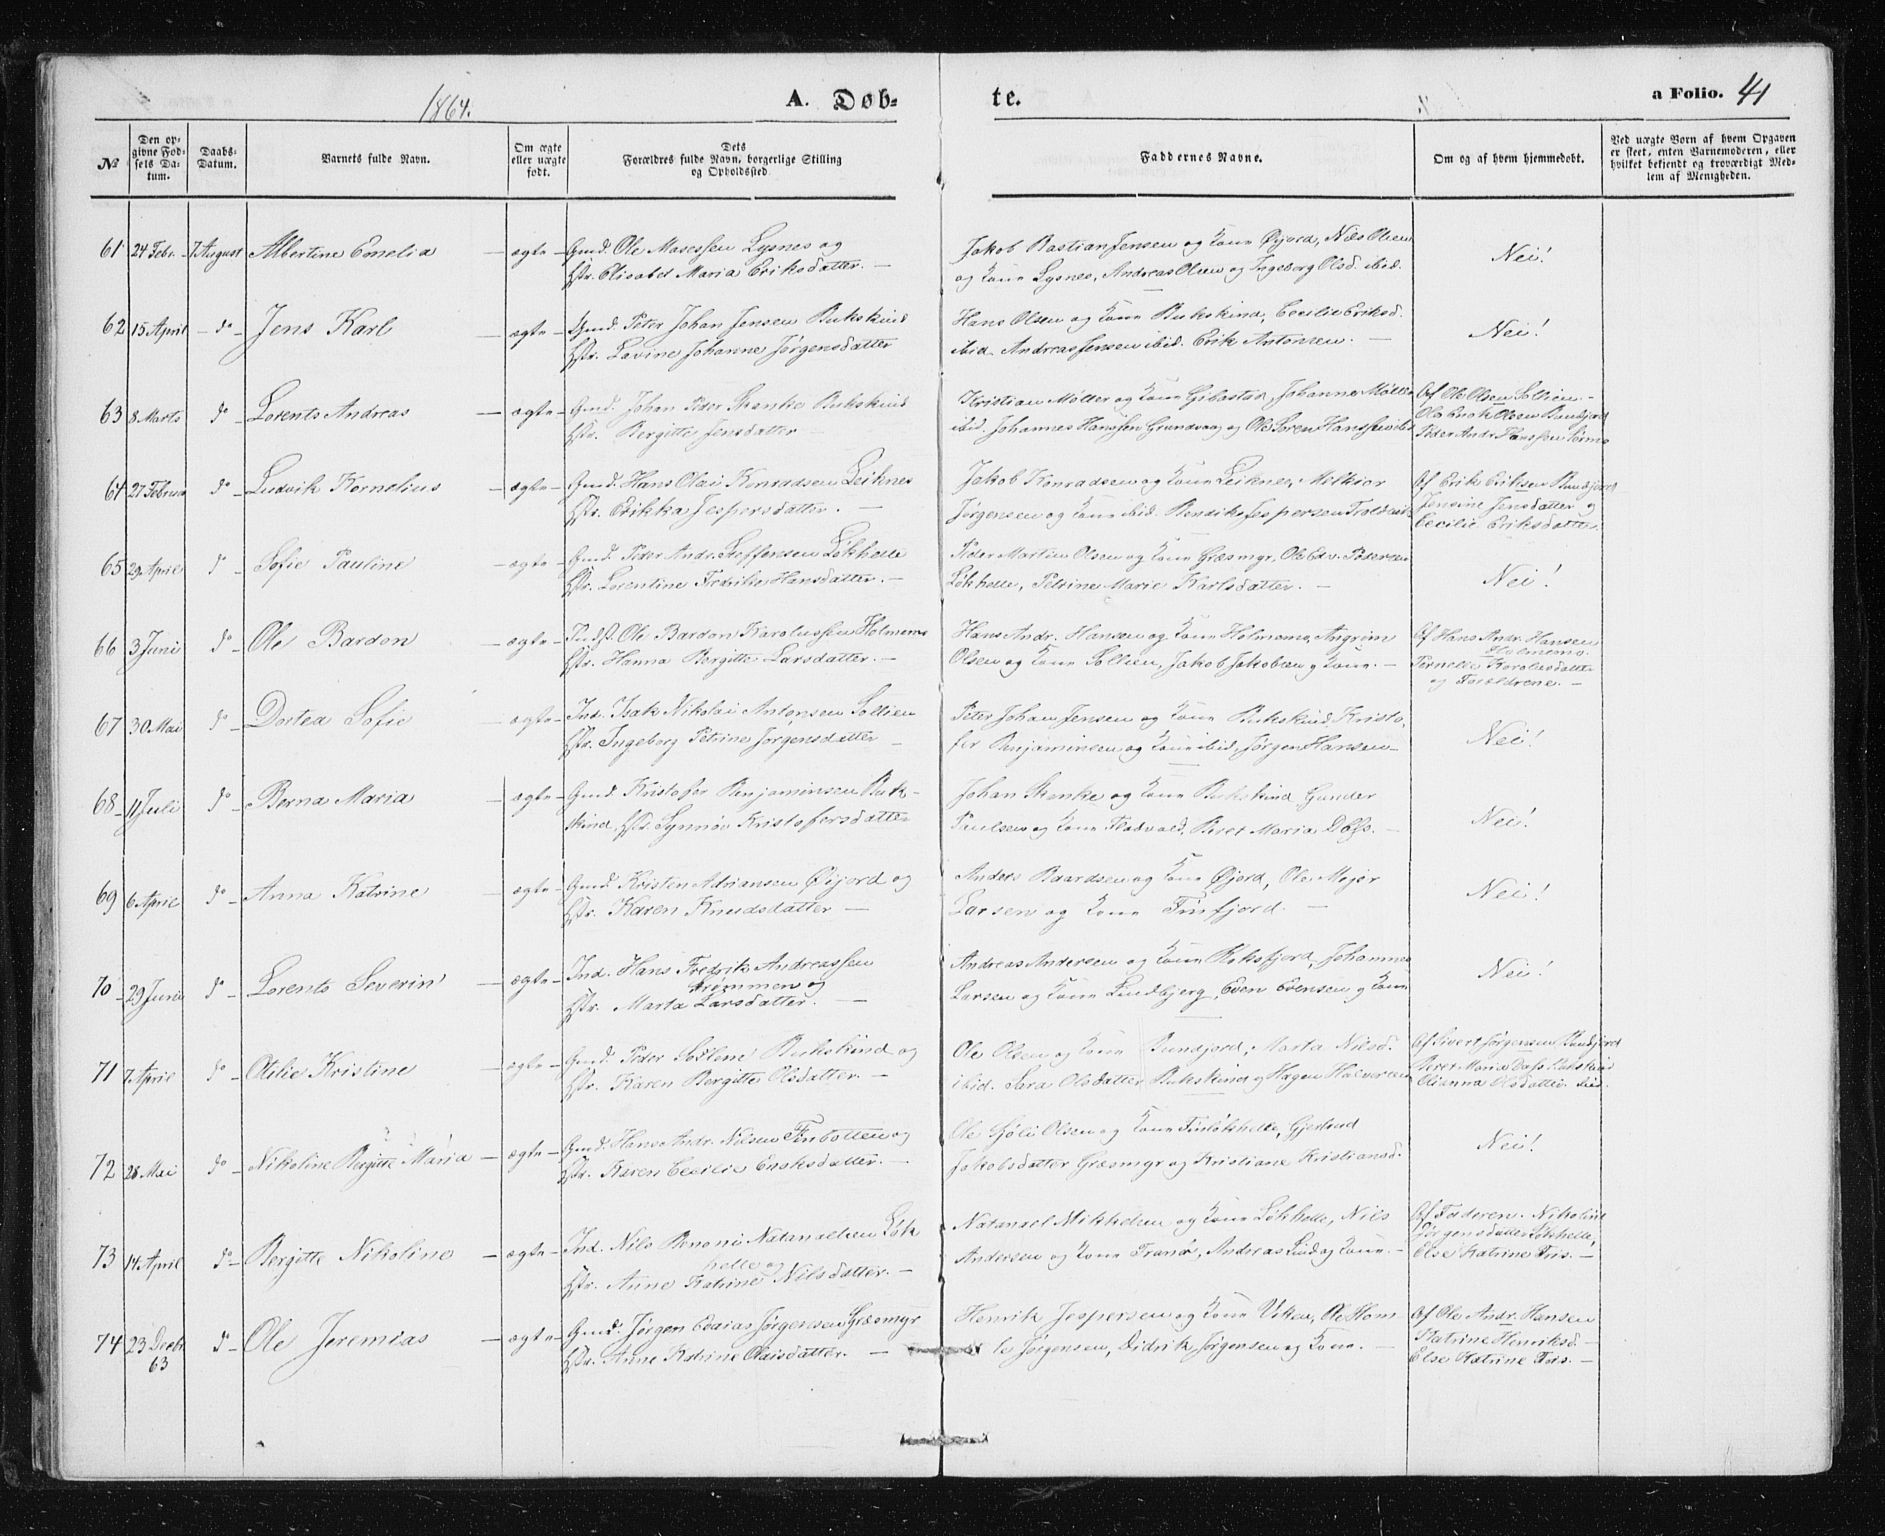 1864.
A. Døb-
te.
a Folio. 41
No
Den op-
givne Fød-
sels Da-
tum.
Daabs-
Datum.
Barnets fulde Navn.
Om ægte
eller uægte
født.
Dets
Forældres fulde Navn, borgerlige Stilling
og Opholdssted.
Faddernes Navne.
Om og af hvem hjemmedøbt.
Ved uægte Born af hvem Opgaven
er skeet, enten Barnemoderen, eller
hvilket bekjendt og troværdigt Med-
lem af Menigheden.
61 24 Febr. 7 August Albertine Emelia - ægte - Gmd. Ole Mosessen Lysnes og
Hstr. Elisabet Maria Eriksdatter. -
Jakob Bastian Jensen og Kone Øijord, Nils Olsen
og Kone Lysnes, Andreas Olsen og Ingeborg Olsd. ibid.
Nei!
62 15 April - do - Jens Karl - ægte - Gmd. Peter Johan Jensen Bukskind
Hstr. Lavine Johanne Jørgensdatter
Hans Olsen og Kone Bukskind, Cecilie Eriksd.
ibid. Andreas Jensen ibid. Erik Antonsen. -
Nei!
63 8 Marts do - Lorents Andreas - ægte - Gmd. Johan Peder Skanke Bukskind
Hstr. Bergitte Jensdatter -
Kristian Møller og Kone Gibostad, Johanne Møller
ibid. Johannes Hanssen Grundvaag og Ole Søren Hanssen ibid
Af Ole Olsen Sollien -
Ole Enok Olsen Bundjord
Peder Andr. Hanssen
64 27 Februar do - Ludvik Kornelius - ægte - Gmd. Hans Olai Konradsen Leiknes
Hstr. Erikka Jespersdatter. -
Jakob Konradsen og Kone Leiknes, Melkior
Jørgensen og Kone ibid. Bendiks Jespersen
Af Erik Eriksen Bundjord
Jensine Jensdatter og
Cecilie Eriksdatter.
65 29 April do - Sofie Pauline - ægte - Gmd. Peder Andr. Steffensen Løkhelle
Hstr. Lorentine Fredrike Hansdatter. -
Peder Martin Olsen og Kone Græsmyr, Ole Edv. Pedersen
Løkhelle, Petrine Marie Karlsdatter. -
Nei!
66 3 Juni do - Ole Bardon - ægte - Indst. Ole Bardon Karolussen Holmemo
Hstr. Hanna Bergitte Larsdatter. -
Hans Andr. Hansen og Kone Holmemo, Angrim
Olsen og Kone Sollien, Jakob Jakobsen og Kone. -
Af Hans Andr. Hansen
Holmemo.
Pernelle Karolusdatter
og Forældrene. -
67 30 Mai do - Dortea Sofie - ægte - Ind. Isak Nikolai Antonsen Sollien
Hstr. Ingeborg Petrine Jørgensdatter -
Peter Johan Jensen og Kone Bukskind, Kristo-
fer Benjaminsen og Kone ibid, Jørgen Hansen -
Nei!
68 - 11 Juli do - Berna Maria - ægte - Gmd. Kristofer Benjaminsen Buk-
skind, Hstr. Synnøv Kristofersdatter
Johan Skanke og Kone Bukskind, Gunder
Paulsen og Kone Fladvold, Beret Maria Dass. -
Nei!
69 6 April do - Anna Katrine - ægte - Gmd. Kristen Adriansen Øijord og
Hstr. Karen Knudsdatter -
Anders Baardsen og Kone Øijord, Ole Mejer
Larsen og Kone Finfjord. -
Nei!
70 - 29 Juni do - Lorents Severin - ægte - Ind. Hans Fredrik Andreassen
Strømmen og
Hstr. Marta Larsdatter. -
Andreas Andersen og Kone Roksfjord, Johannes
Larsen og Kone Lindbjerg, Even Evensen og Kone
Nei!
71 7 April do - Otilie Kristine - ægte - Gmd. Peder Sørline Bukskind og
Hstr. Karen Bergitte Olsdatter. -
Ole Olsen og Kone Bundjord, Marta Nilsd.
ibid. Sara Olsdatter Bukskind og Hagen Halvorsen
Af Sivert Jørgensen Bundjord
Beret Maria Dass Bukskind
Olianna Olsdatter ibid.
72 28 Mai do - Nikoline Bergitte Maria - ægte - Gmd. Hans Andr. Nilsen Finbotten og
Hstr. Karen Cecilie Enoksdatter. -
Ole Sjøli Olsen og Kone Finløkhelle, Gjertrud
Jakobsdatter Græsmyr og Kristiane Kristiansd.
Nei!
73 14 April do - Bergitte Nikoline - ægte - Ind. Nils Benoni Natanaelsen Løk
helle og
Hstr. Anne Katrine Nilsdatter. -
Natanael Mikkelsen og Kone Løkhelle, Nils
Andersen og Kone Tranø, Andreas Lind og Kone. -
Af Faderen. Nikoline
Jørgensdatter Løkhelle,
Else Katrine Friis. -
74 23 Decbr. do - Ole Jeremias - ægte - Gmd. Jørgen Esaias Jørgensen Græsmyr
63
Hstr. Anne Katrine Olaisdatter. -
Henrik Jespersen og Kone Viken, Ole Hom
le Jørgensen, Didrik Jørgensen og Kone. -
Af Ole Andr. Hansen
Katrine Henriksd. -
Else Katrine Friis. -